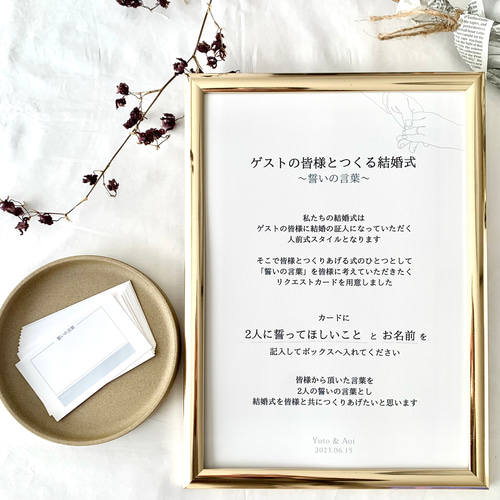 ゲストの皆様とつくる結婚式
～誓いの言葉～
私たちの結婚式は
ゲストの皆様に結婚の証人になっていただく
人前式スタイルとなります
そこで皆様とつくりあげる式のひとつとして
「誓いの言葉」を皆様に考えていただきたく
リクエストカードを用意しました
カードに
2人に誓ってほしいこと と お名前 を
記入してボックスへ入れてください
皆様から頂いた言葉を
2人の誓いの言葉とし
結婚式を皆様と共につくりあげたいと思います
Yuto & Aoi
2021.06.15
誓いの言葉